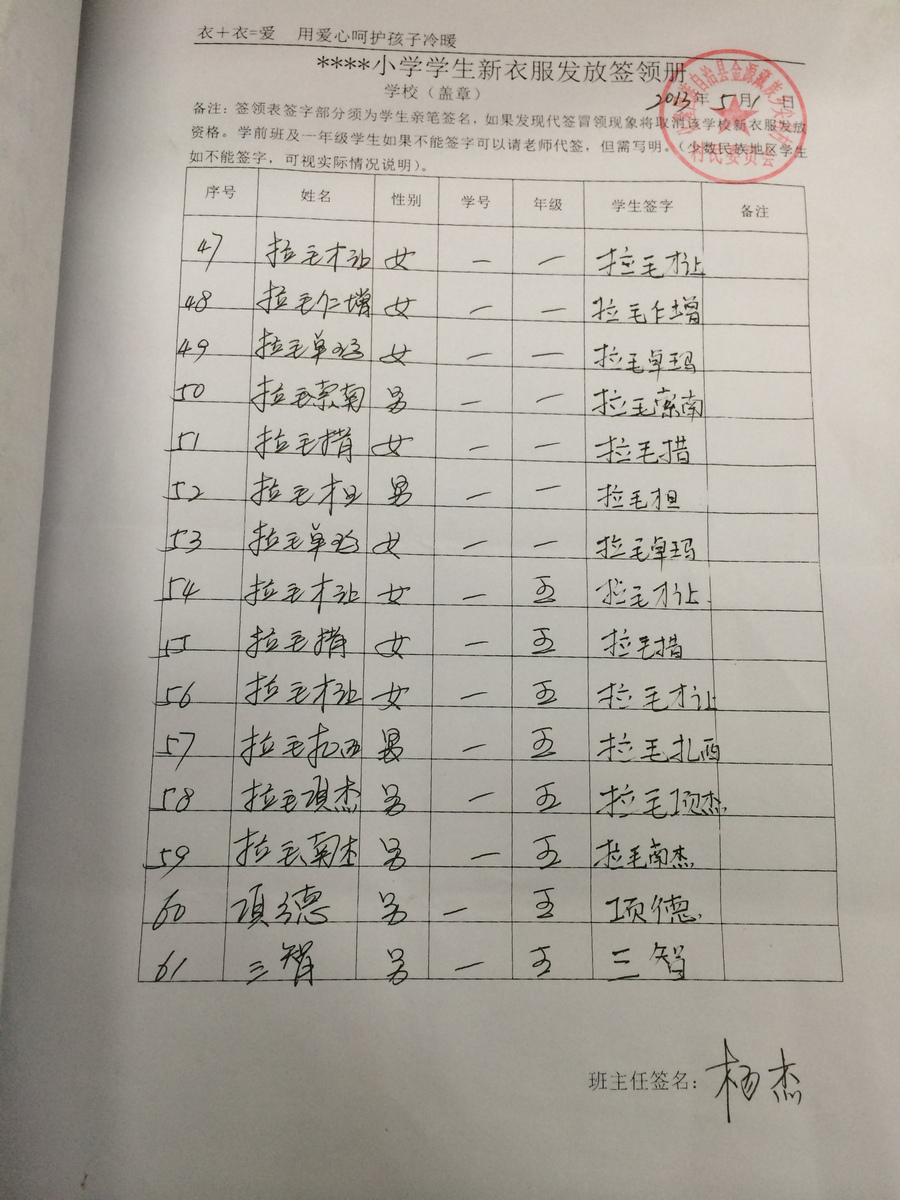 衣＋衣=爱 用爱心呵护孩子冷暖
****小学学生新衣服发放签领册
学校（盖章） 2013年 5月1日
备注：签领表签字部分须为学生亲笔签名，如果发现代签冒领现象将取消该学校新衣服发放
资格。学前班及一年级学生如果不能签字可以请老师代签，但需写明。（少数民族地区学生
如不能签字，可视实际情况说明）。
自治县金源藏族乡
村民委员会
序号 姓名 性别 学号 年级 学生签字 备注
47 拉毛才让 女 一 一 拉毛才让
48 拉毛仁增 女 一 一 拉毛仁增
49 拉毛卓玛 女 一 一 拉毛卓玛
50 拉毛索南 男 一 一 拉毛索南
51 拉毛措 女 一 一 拉毛措
52 拉毛才旦 男 一 一 拉毛才旦
53 拉毛卓玛 女 一 一 拉毛卓玛
54 拉毛才让 女 一 五 拉毛才让
55 拉毛措 女 一 五 拉毛措
56 拉毛才让 女 一 五 拉毛才让
57 拉毛扎西 男 一 五 拉毛扎西
58 拉毛项杰 男 一 五 拉毛项杰
59 拉毛南杰 男 一 五 拉毛南杰
60 项德 男 一 五 项德
61 三智 男 一 五 三智
班主任签名：杨杰